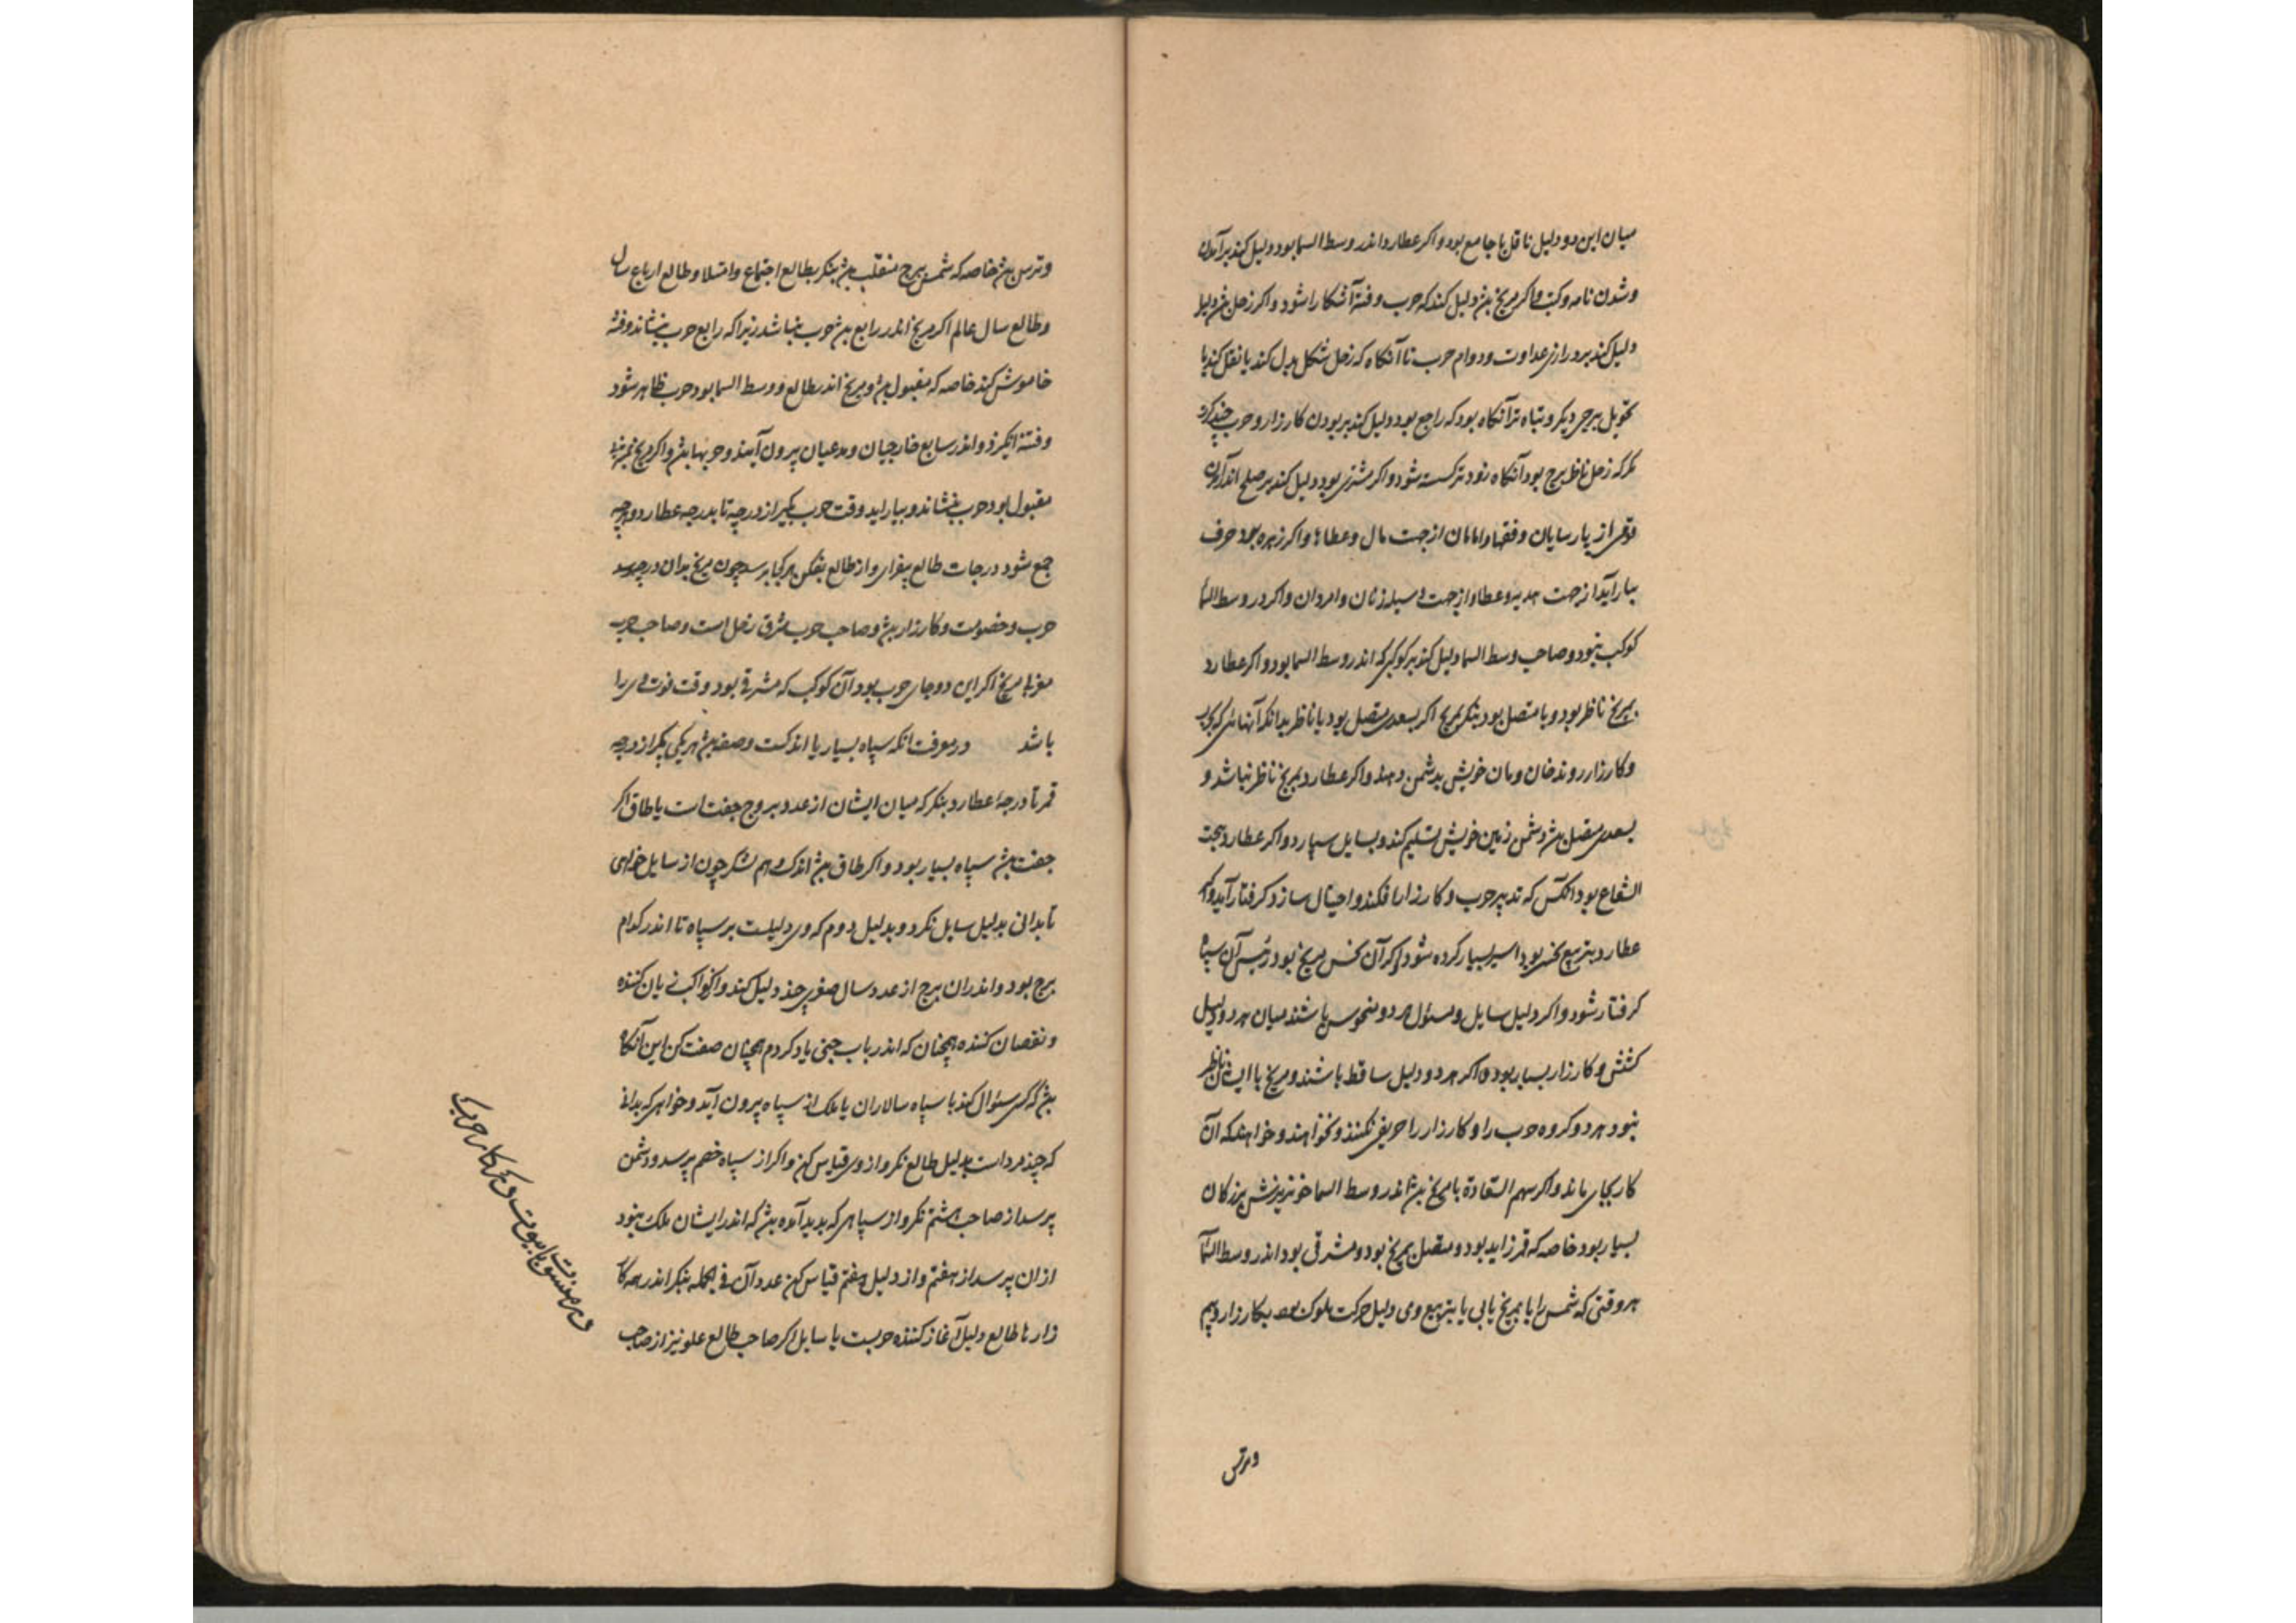 میان این دو دلیل ناقل یا جامع بود و اکر عطارد اندر وسط السما بود دلیل کند بر آمدن
و شدن نامه و کتب و اکر مریخ بود دلیل کند که حرب و فتنه آشکارا شود و اکر زحل دلیل
دلیل کند بر درازی عداوت و دوام حرب تا آنکاه که زحل شکل بدل کند یا نقل کند یا
تحویل ببرجی دیکر و تباه تر آنکاه بود که راجع بود دلیل کند بر بودن کارزار و حرب
مکر که زحل ناظر برج بود آنکاه زودتر کسسته شود و اکر مشتری بود دلیل کند بر صلح اندر آمدن
قومی از پارسایان و فقها و امامان از جهت مال و عطاها و اکر زهره بود حرف
بیاراید از جهت هدیه و عطا و از جهت زنان و امردان و اکر در وسط السما
کوکب نبود و صاحب وسط السما دلیل کند بر کوکبی که اندر وسط السما بود و اکر عطارد
بمریخ ناظر بود و یا متصل بود بنکر بمریخ اکر بسعدی متصل بود یا ناظر بدانکه آنهائی که بحرب
و کارزار روند خان و مان خویش بدشمن دهند و اکر عطارد بمریخ ناظر نباشد و
بسعدی متصل دشمن زمین خویش تسلیم کند و بسایل سپارد و اکر عطارد تحت
الشعاع بود آنکس که تدبیر حرب و کارزار افکند و احتیال سازد کرفتار آید و اکر
عطارد بتربیع نحس بود اسیر بسیار کرده شود اکر آن نحس مریخ بود رئیس آن سپاه
کرفتار شود و اکر دلیل سایل و مسئول هر دو منحوس باشند میان هر دو دلیل
کشش و کارزار بسیار بود و اکر هر دو دلیل ساقط باشند و مریخ با ایشان ناظر
نبود هر دو کروه حرب را و کارزار را حریفی نکنند و نخواهند و خواهند که آن
کار بجای ماند و اکر سهم السعادة با مریخ اندر وسط السما خونریزش بزرکان
بسیار بود خاصه که قمر زاید بود و متصل بمریخ بود و مشرقی بود اندر وسط السما
هر وقتی که شمس را با مریخ یابی یا بتربیع وی دلیل حرکت ملوک بود بکارزار و بیم
و ترس
و ترس خاصه که شمس ببرج منقلب بنکر بطالع اجتماع و امتلا و طالع ارباع سال
و طالع سال عالم اکر مریخ اندر رابع حرب نباشد زیرا که رابع حرب بنشاند و فتنه
خاموش کند خاصه که مقبول و مریخ اندر طالع و وسط السما بود حرب ظاهر شود
و فتنه انکیزد و اندر سابع خارجیان و مدعیان بیرون آیند و حربها و اکر مریخ
مقبول بود حرب بنشاند و بیاراید وقت حرب بکیر از درجه تا بدرجه عطارد و هرچه
جمع شود درجات طالع بیفزای و از طالع بفکن هر کجا برسد چون مریخ بدان درجه رسد
حرب و خصومت و کارزار و صاحب حرب مشرق زحل است و صاحب حرب
مغرب مریخ اکر این دو جای حرب بود آن کوکب که مشرقی بود وقت
باشد در معرفت آنکه سپاه بسیار یا اندکست و صفت هر یکی بکیر از درجه
قمر تا درجهٔ عطارد بنکر که میان ایشان از عدد بروج جفت است یا طاق اکر
جفت سپاه بسیار بود و اکر طاق اندک هم لشکر چون از سایل خواهی
تا بدانی بدلیل سایل نکر و بدلیل دوم که وی دلیلست بر سپاه تا اندر کدام
برج بود و اندران برج از عدد سال چند دلیل کند و آن کواکب زیان کننده
و نقصان کننده همچنان که اندر باب یاد کردم همچنان صفت کن این آنکاه
که کسی سئوال کند با سپاه سالاران یا ملک از سپاه بیرون آید و خواهی که بدانی
که چند مرد است بدلیل طالع نکر و از وی قیاس کن و اکر از سپاه خصم پرسد و دشمن
پرسد از صاحب هشتم نکر و از سپاهی که پدید آمده که اندر ایشان ملک نبود
از ان پرسد از هفتم و از دلیل هفتم قیاس کن عدد آن فی الجمله بنکر اندر همه کار
زارها طالع دلیل آغاز کننده حربست یا سایل اکر صاحب طالع علو نیز از صاحب